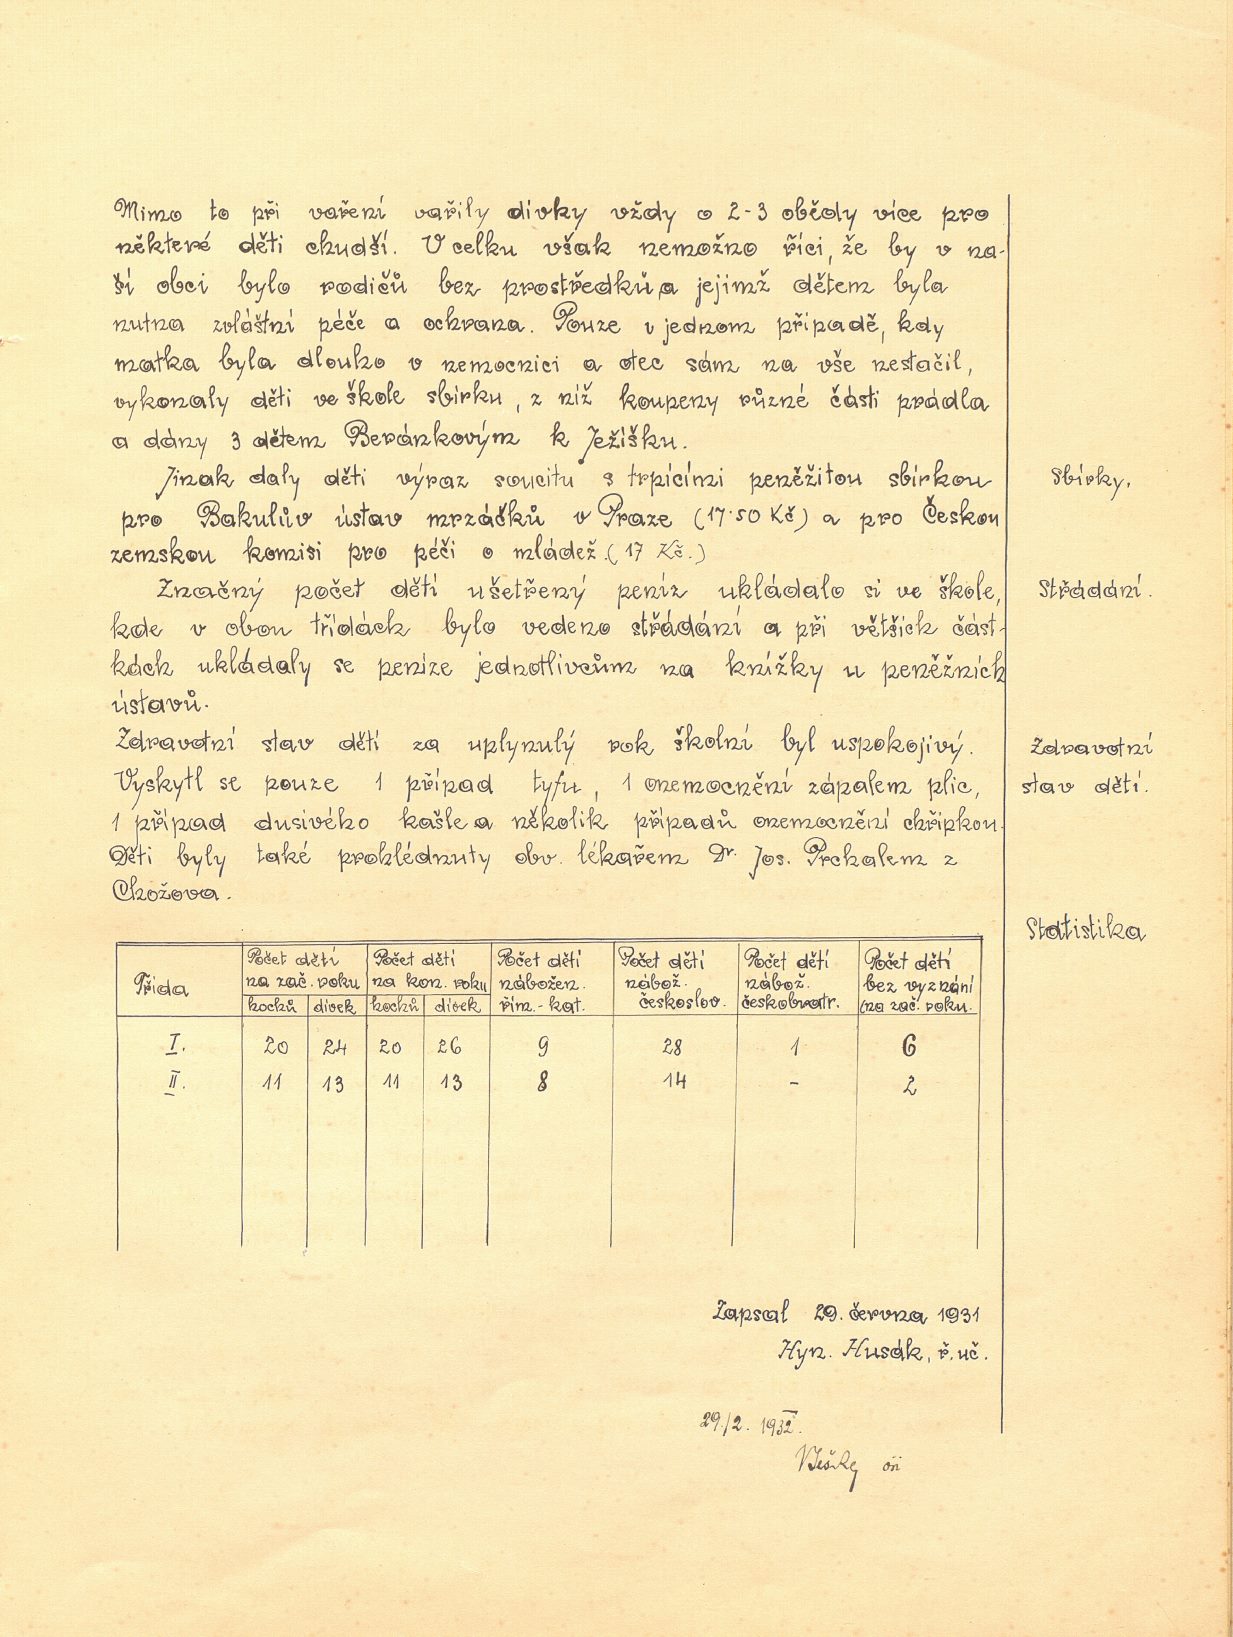 Mimo to při vaření vařily dívky vždy o 2-3 obědy více pro
některé děti chudší. V celku však nemožno říci, že by v na-
ší obci bylo rodičů bez prostředků, a jejimž dětem byla
nutna zvláštní péče a ochrana. Pouze v jednom případě, kdy
matka byla dlouho v nemocnici a otec sám na vše nestačil,
vykonaly děti ve škole sbírku, z níž koupeny různé části prádla
a dány 3 dětem Beránkovým k Ježíšku.
Jinak daly děti výraz soucitu s trpícími peněžitou sbírkou
Sbírky.
pro Bakulův ústav mrzáčků v Praze (17·50 Kč) a pro Českou
zemskou komisi pro péči o mládež. (17 Kč.)
Značný počet dětí ušetřený peníz ukládalo si ve škole,
Střádání.
kde v obou třídách bylo vedeno střádání a při větších část-
kách ukládaly se peníze jednotlivcům na knížky u peněžních
ústavů.
Zdravotní stav dětí za uplynulý rok školní byl uspokojivý.
Zdravotní
Vyskytl se pouze 1 případ tyfu, 1 onemocnění zápalem plic,
stav dětí.
1 případ dusivého kašle a několik případů onemocnění chřipkou.
Děti byly také prohlédnuty obv. lékařem Dr. Jos. Prchalem z
Chožova.
Statistika
Třída
Počet dětí na zač. roku
Počet dětí na kon. roku
Počet dětí nábožen. řím.-kat.
Počet dětí nábož. českoslov.
Počet dětí nábož. českobratr.
Počet dětí bez vyznání (na zač. roku.
hochů dívek hochů dívek
I. 20 24 20 26 9 28 1 6
II. 11 13 11 13 8 14 - 2
Zapsal 29. června 1931
Hyn. Husák, ř. uč.
29./2. 1932.